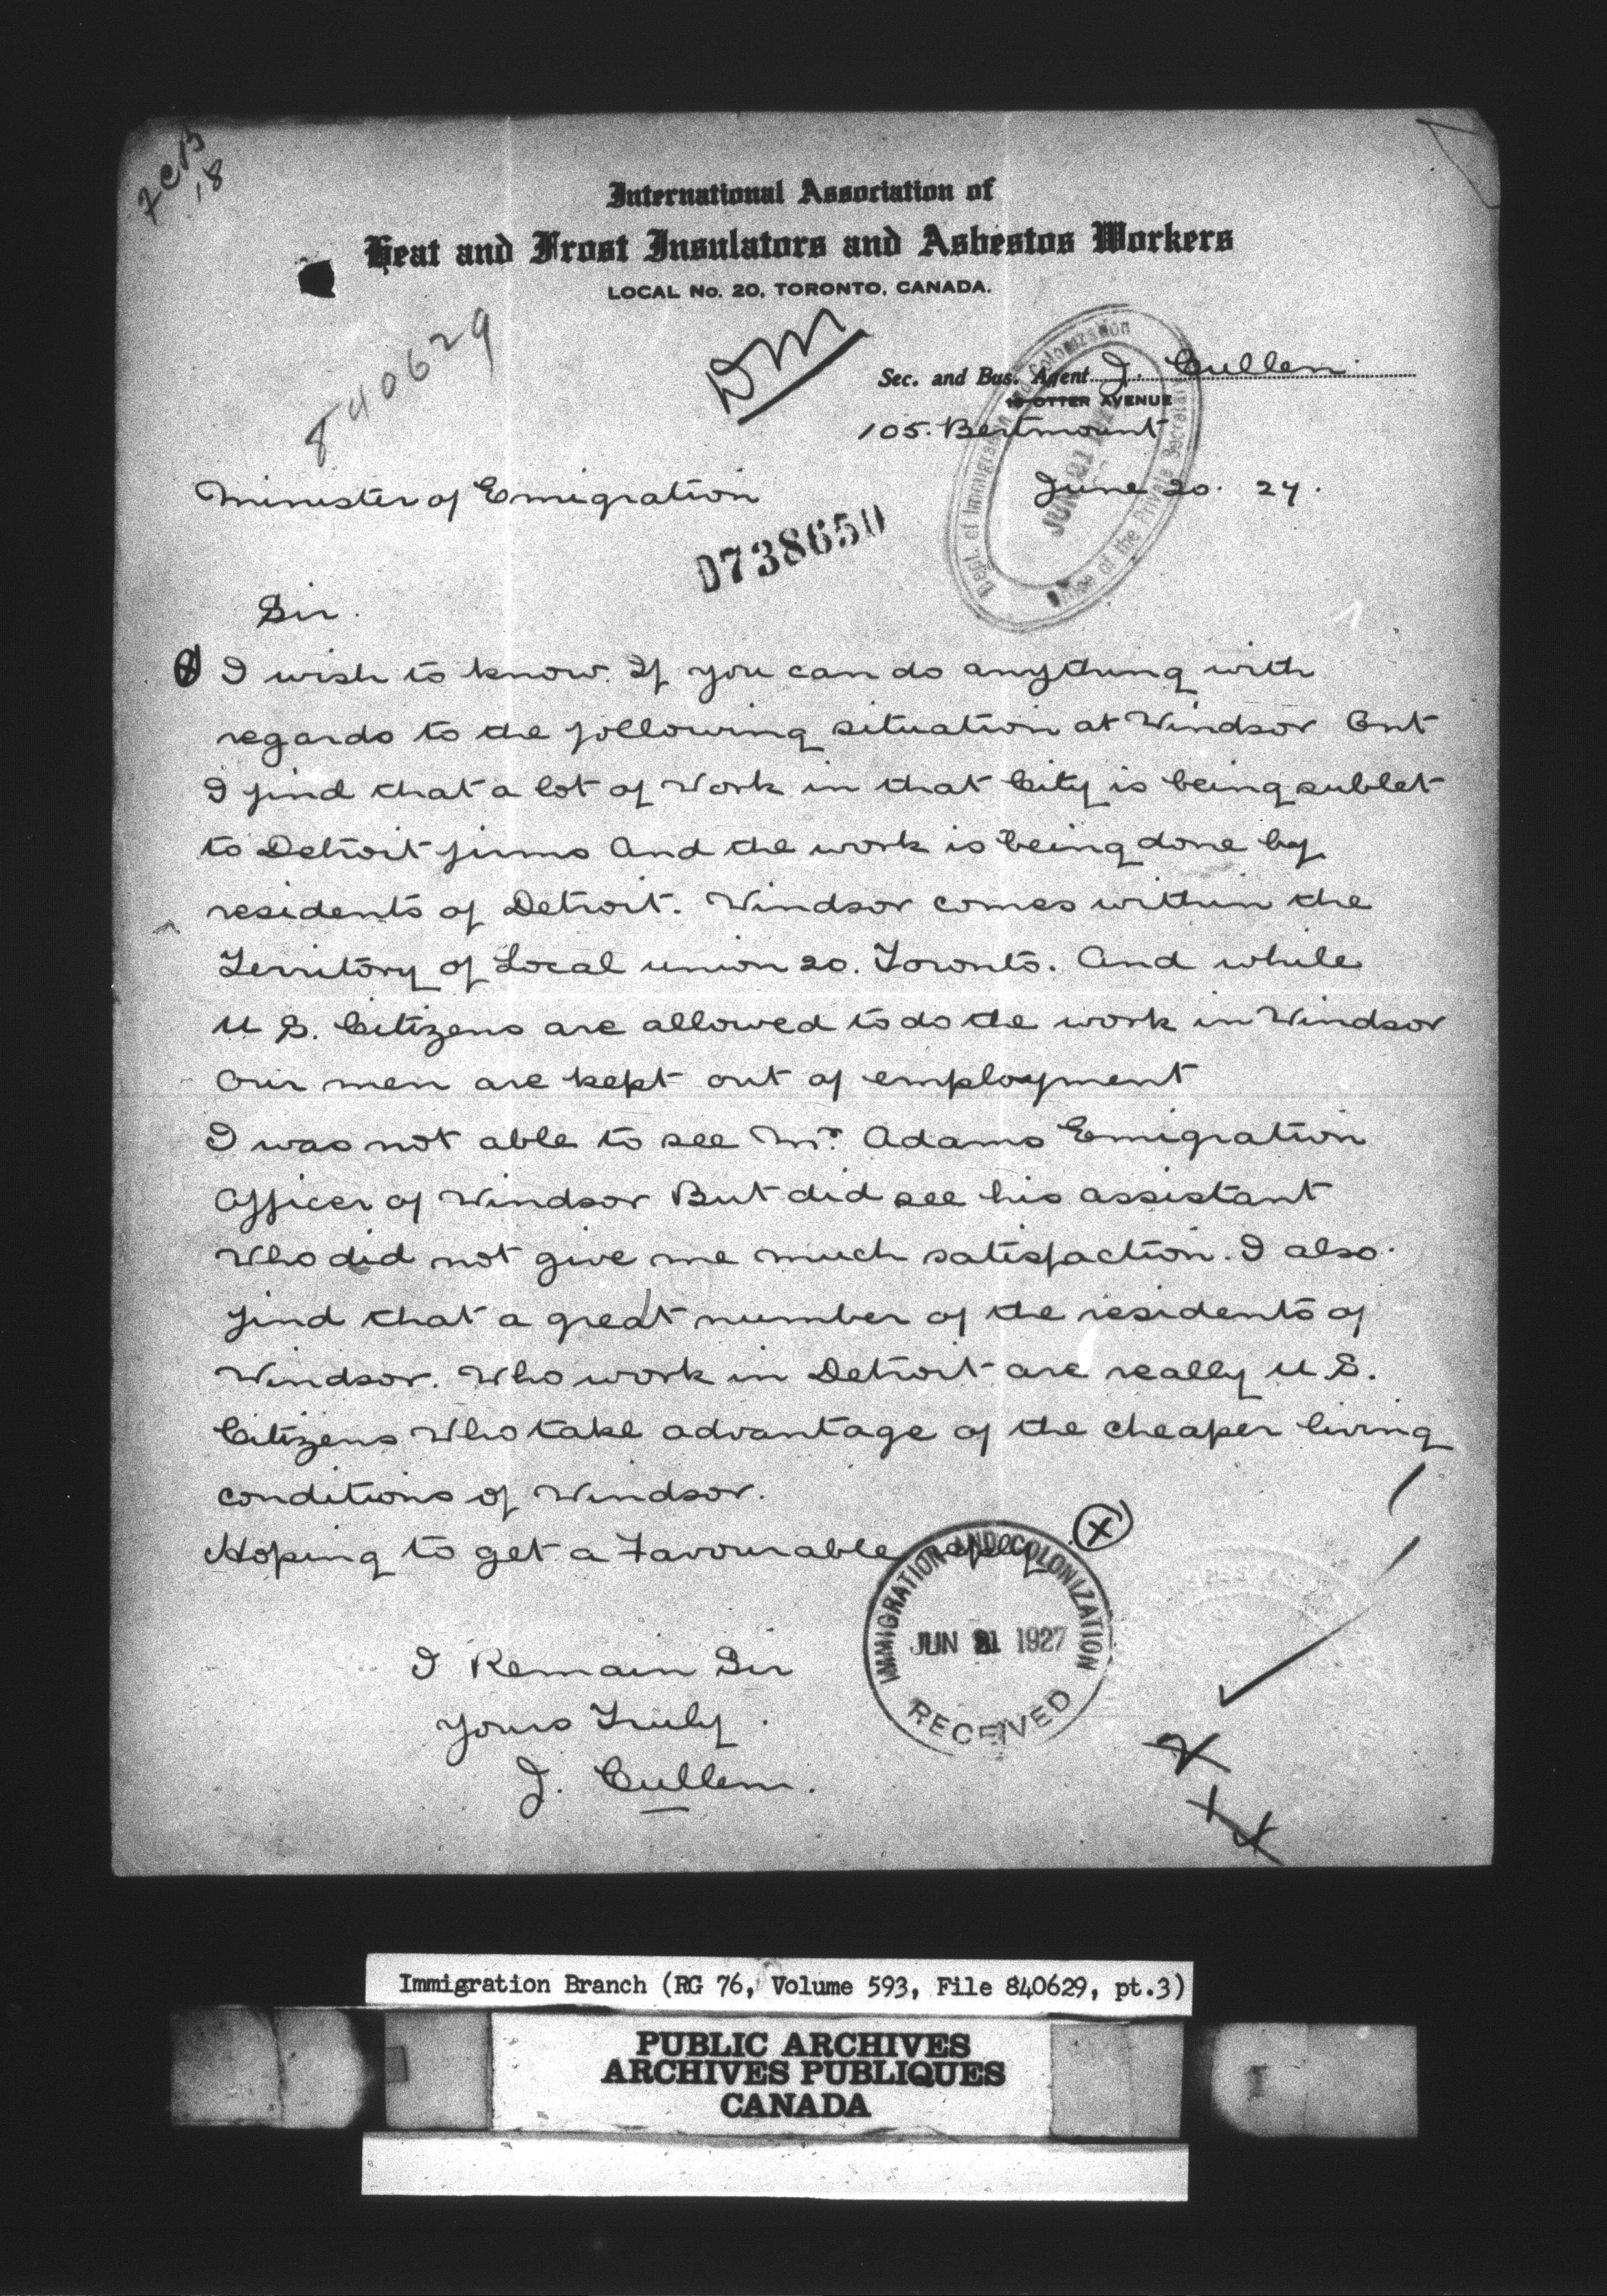 FCB
18
International Association of
Heat and Frost Insulators and Asbestos Workers
LOCAL No. 20, TORONTO, CANADA.
840629
Sec. and Bus. Agent J. Cullen
OTTER AVENUE
105. Bertmount
Dept. of Immigration and Colonization
JUN 21
Office of the Private Secretary
Minister of Emigration
June 20. 27.
0738650
Sir.
I wish to know. If you can do anything with
regards to the following situation at Windsor Ont
I find that a lot of Work in that City is being sublet
to Detroit firms And the work is being done by
residents of Detroit. Windsor comes within the
Territory of Local union 20. Toronto. And while
U S. Citizens are allowed to do the work in Windsor
Our men are kept out of employment
I was not able to see Mr. Adams Emigration
Officer of Windsor But did see his assistant
Who did not give me much satisfaction. I also.
find that a great number of the residents of
Windsor. Who work in Detroit are really U.S.
Citizens Who take advantage of the cheaper living
conditions of Windsor.
Hoping to get a Favourable reply.
X
IMMIGRATION AND COLONIZATION
JUN 21 1927
RECEIVED
I Remain Sir
Yours Truly.
J. Cullen.
Immigration Branch (RG 76, Volume 593, File 840629, pt.3)
PUBLIC ARCHIVES
ARCHIVES PUBLIQUES
CANADA